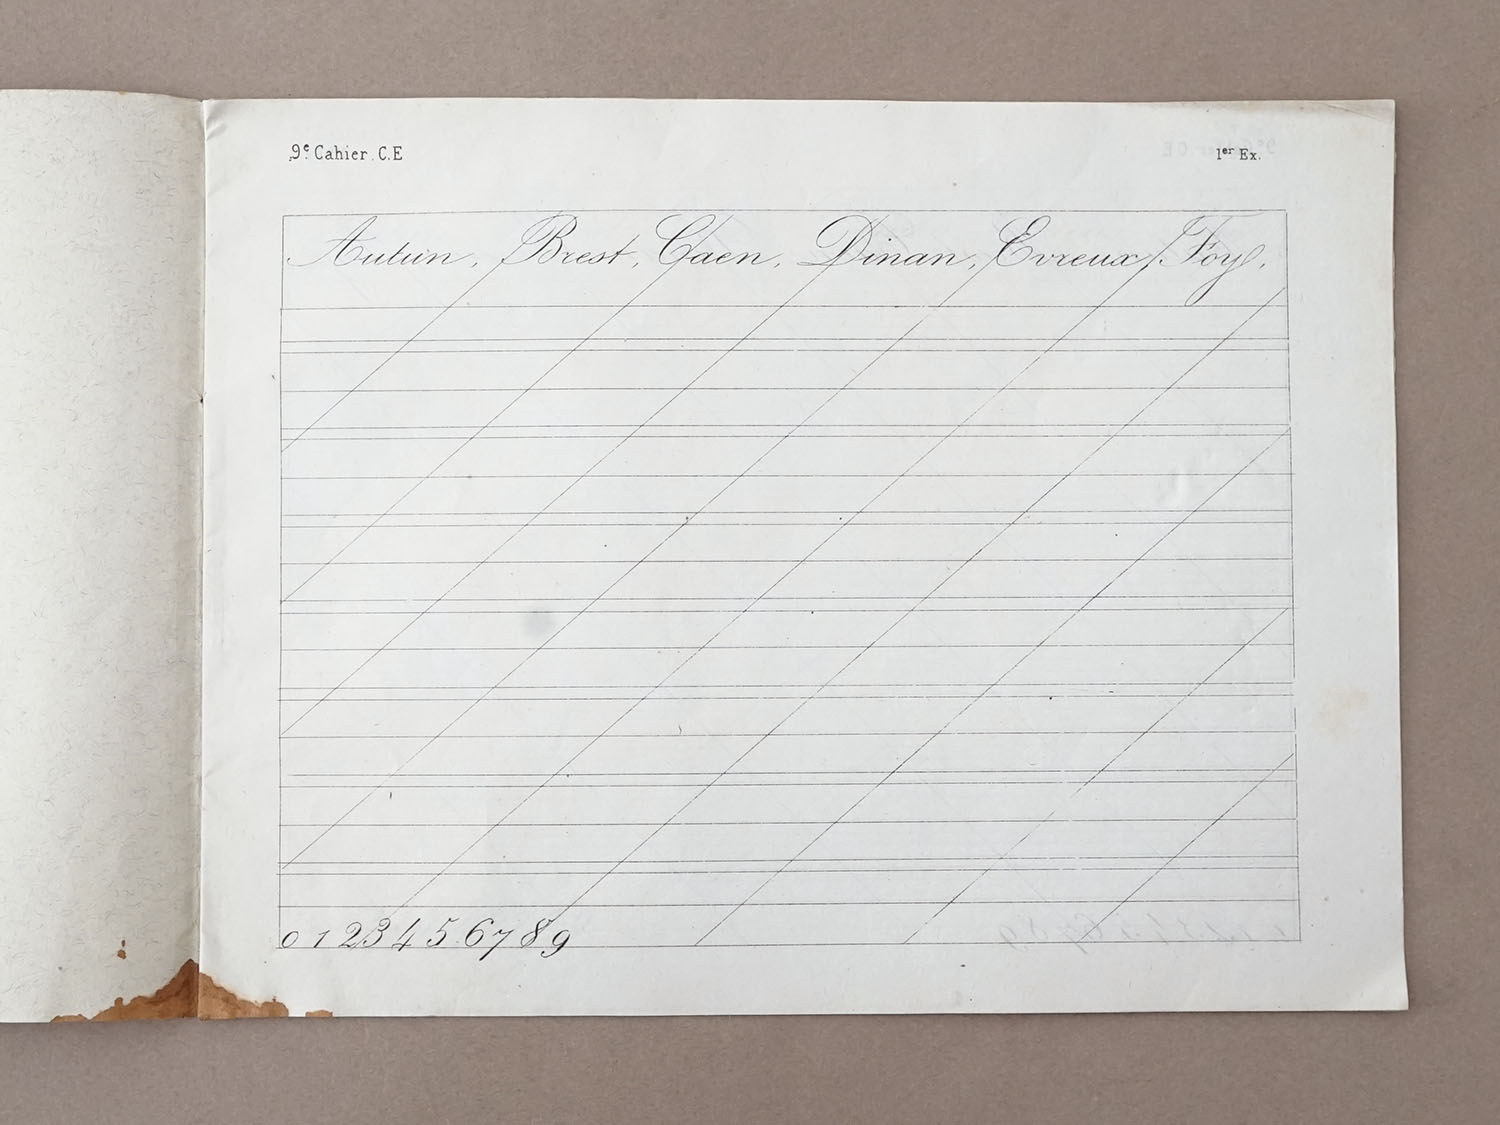 9e Cahier. C.E 1er Ex.
Autun, Brest, Caen, Dinan, Evreux, Foy,
0 1 2 3 4 5 6 7 8 9